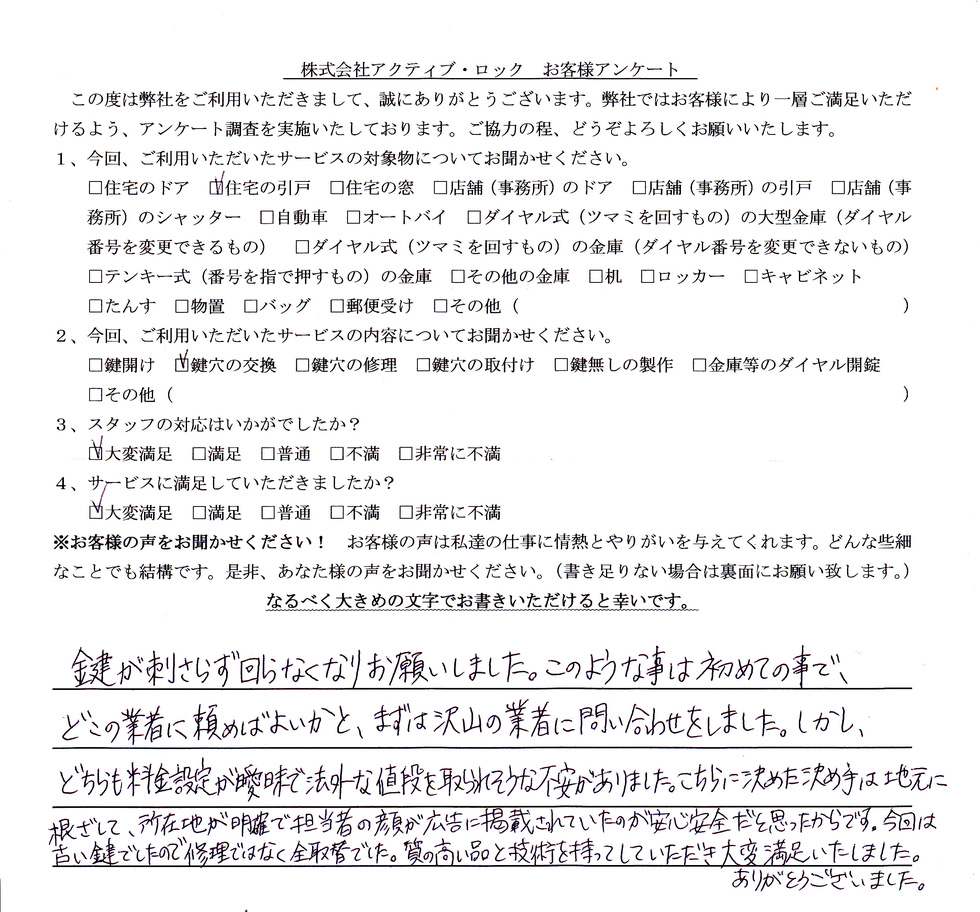 株式会社アクティブ・ロック　お客様アンケート
この度は弊社をご利用いただきまして、誠にありがとうございます。弊社ではお客様により一層ご満足いただ
けるよう、アンケート調査を実施いたしております。ご協力の程、どうぞよろしくお願いいたします。
１、今回、ご利用いただいたサービスの対象物についてお聞かせください。
□住宅のドア　☑住宅の引戸　□住宅の窓　□店舗（事務所）のドア　□店舗（事務所）の引戸　□店舗（事
務所）のシャッター　□自動車　□オートバイ　□ダイヤル式（ツマミを回すもの）の大型金庫（ダイヤル
番号を変更できるもの）　□ダイヤル式（ツマミを回すもの）の金庫（ダイヤル番号を変更できないもの）
□テンキー式（番号を指で押すもの）の金庫　□その他の金庫　□机　□ロッカー　□キャビネット
□たんす　□物置　□バッグ　□郵便受け　□その他（　　　　　　　　　　）
２、今回、ご利用いただいたサービスの内容についてお聞かせください。
□鍵開け　☑鍵穴の交換　□鍵穴の修理　□鍵穴の取付け　□鍵無しの製作　□金庫等のダイヤル開錠
□その他（　　　　　　　　　　）
３、スタッフの対応はいかがでしたか？
☑大変満足　□満足　□普通　□不満　□非常に不満
４、サービスに満足していただきましたか？
☑大変満足　□満足　□普通　□不満　□非常に不満
※お客様の声をお聞かせください！　お客様の声は私達の仕事に情熱とやりがいを与えてくれます。どんな些細
なことでも結構です。是非、あなた様の声をお聞かせください。（書き足りない場合は裏面にお願い致します。）
なるべく大きめの文字でお書きいただけると幸いです。
鍵が刺さらず回らなくなりお願いしました。このような事は初めての事で、
どこの業者に頼めばよいかと、まずは沢山の業者に問い合わせをしました。しかし、
どちらも料金設定が曖昧で法外な値段を取られそうな不安がありました。こちらに決めた決め手は地元に
根ざして、所在地が明確で担当者の顔が広告に掲載されていたのが安心安全だと思ったからです。今回は
古い鍵でしたので修理ではなく全取替でした。質の高い品と技術を持ってしていただき大変満足いたしました。
ありがとうございました。